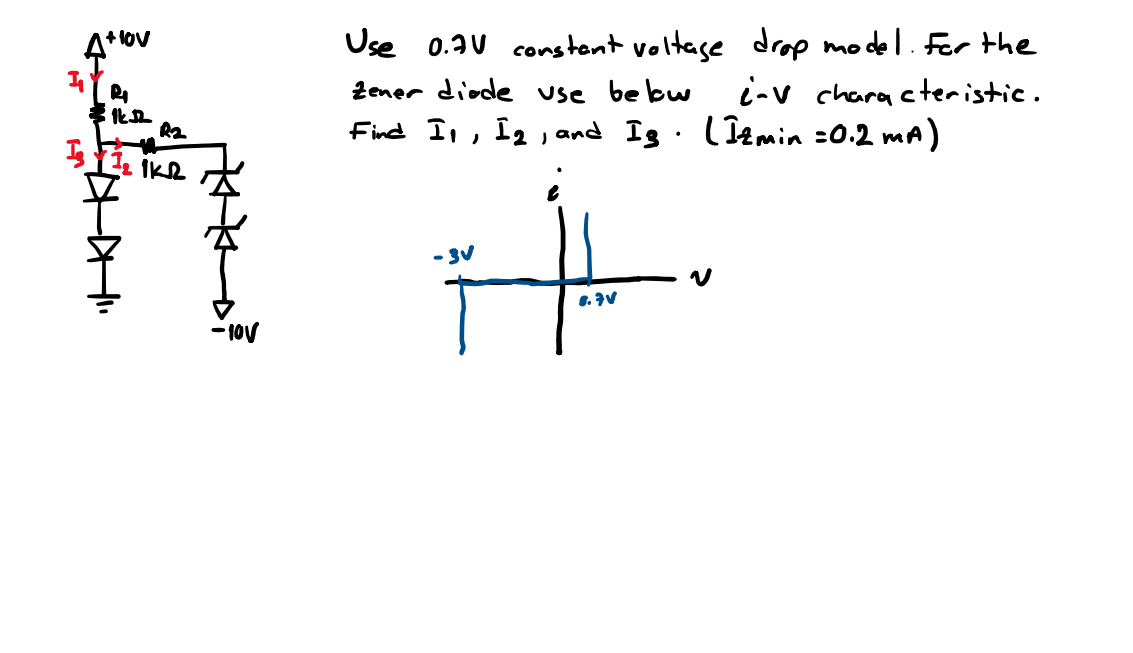 +10V
I1
R1
1kΩ
R2
I3
I2
1kΩ
-10V
Use 0.7V constant voltage drop model. For the
zener diode use below i-V characteristic.
Find I1, I2, and I3. (Izmin = 0.2 mA)
i
-3V
V
0.7V